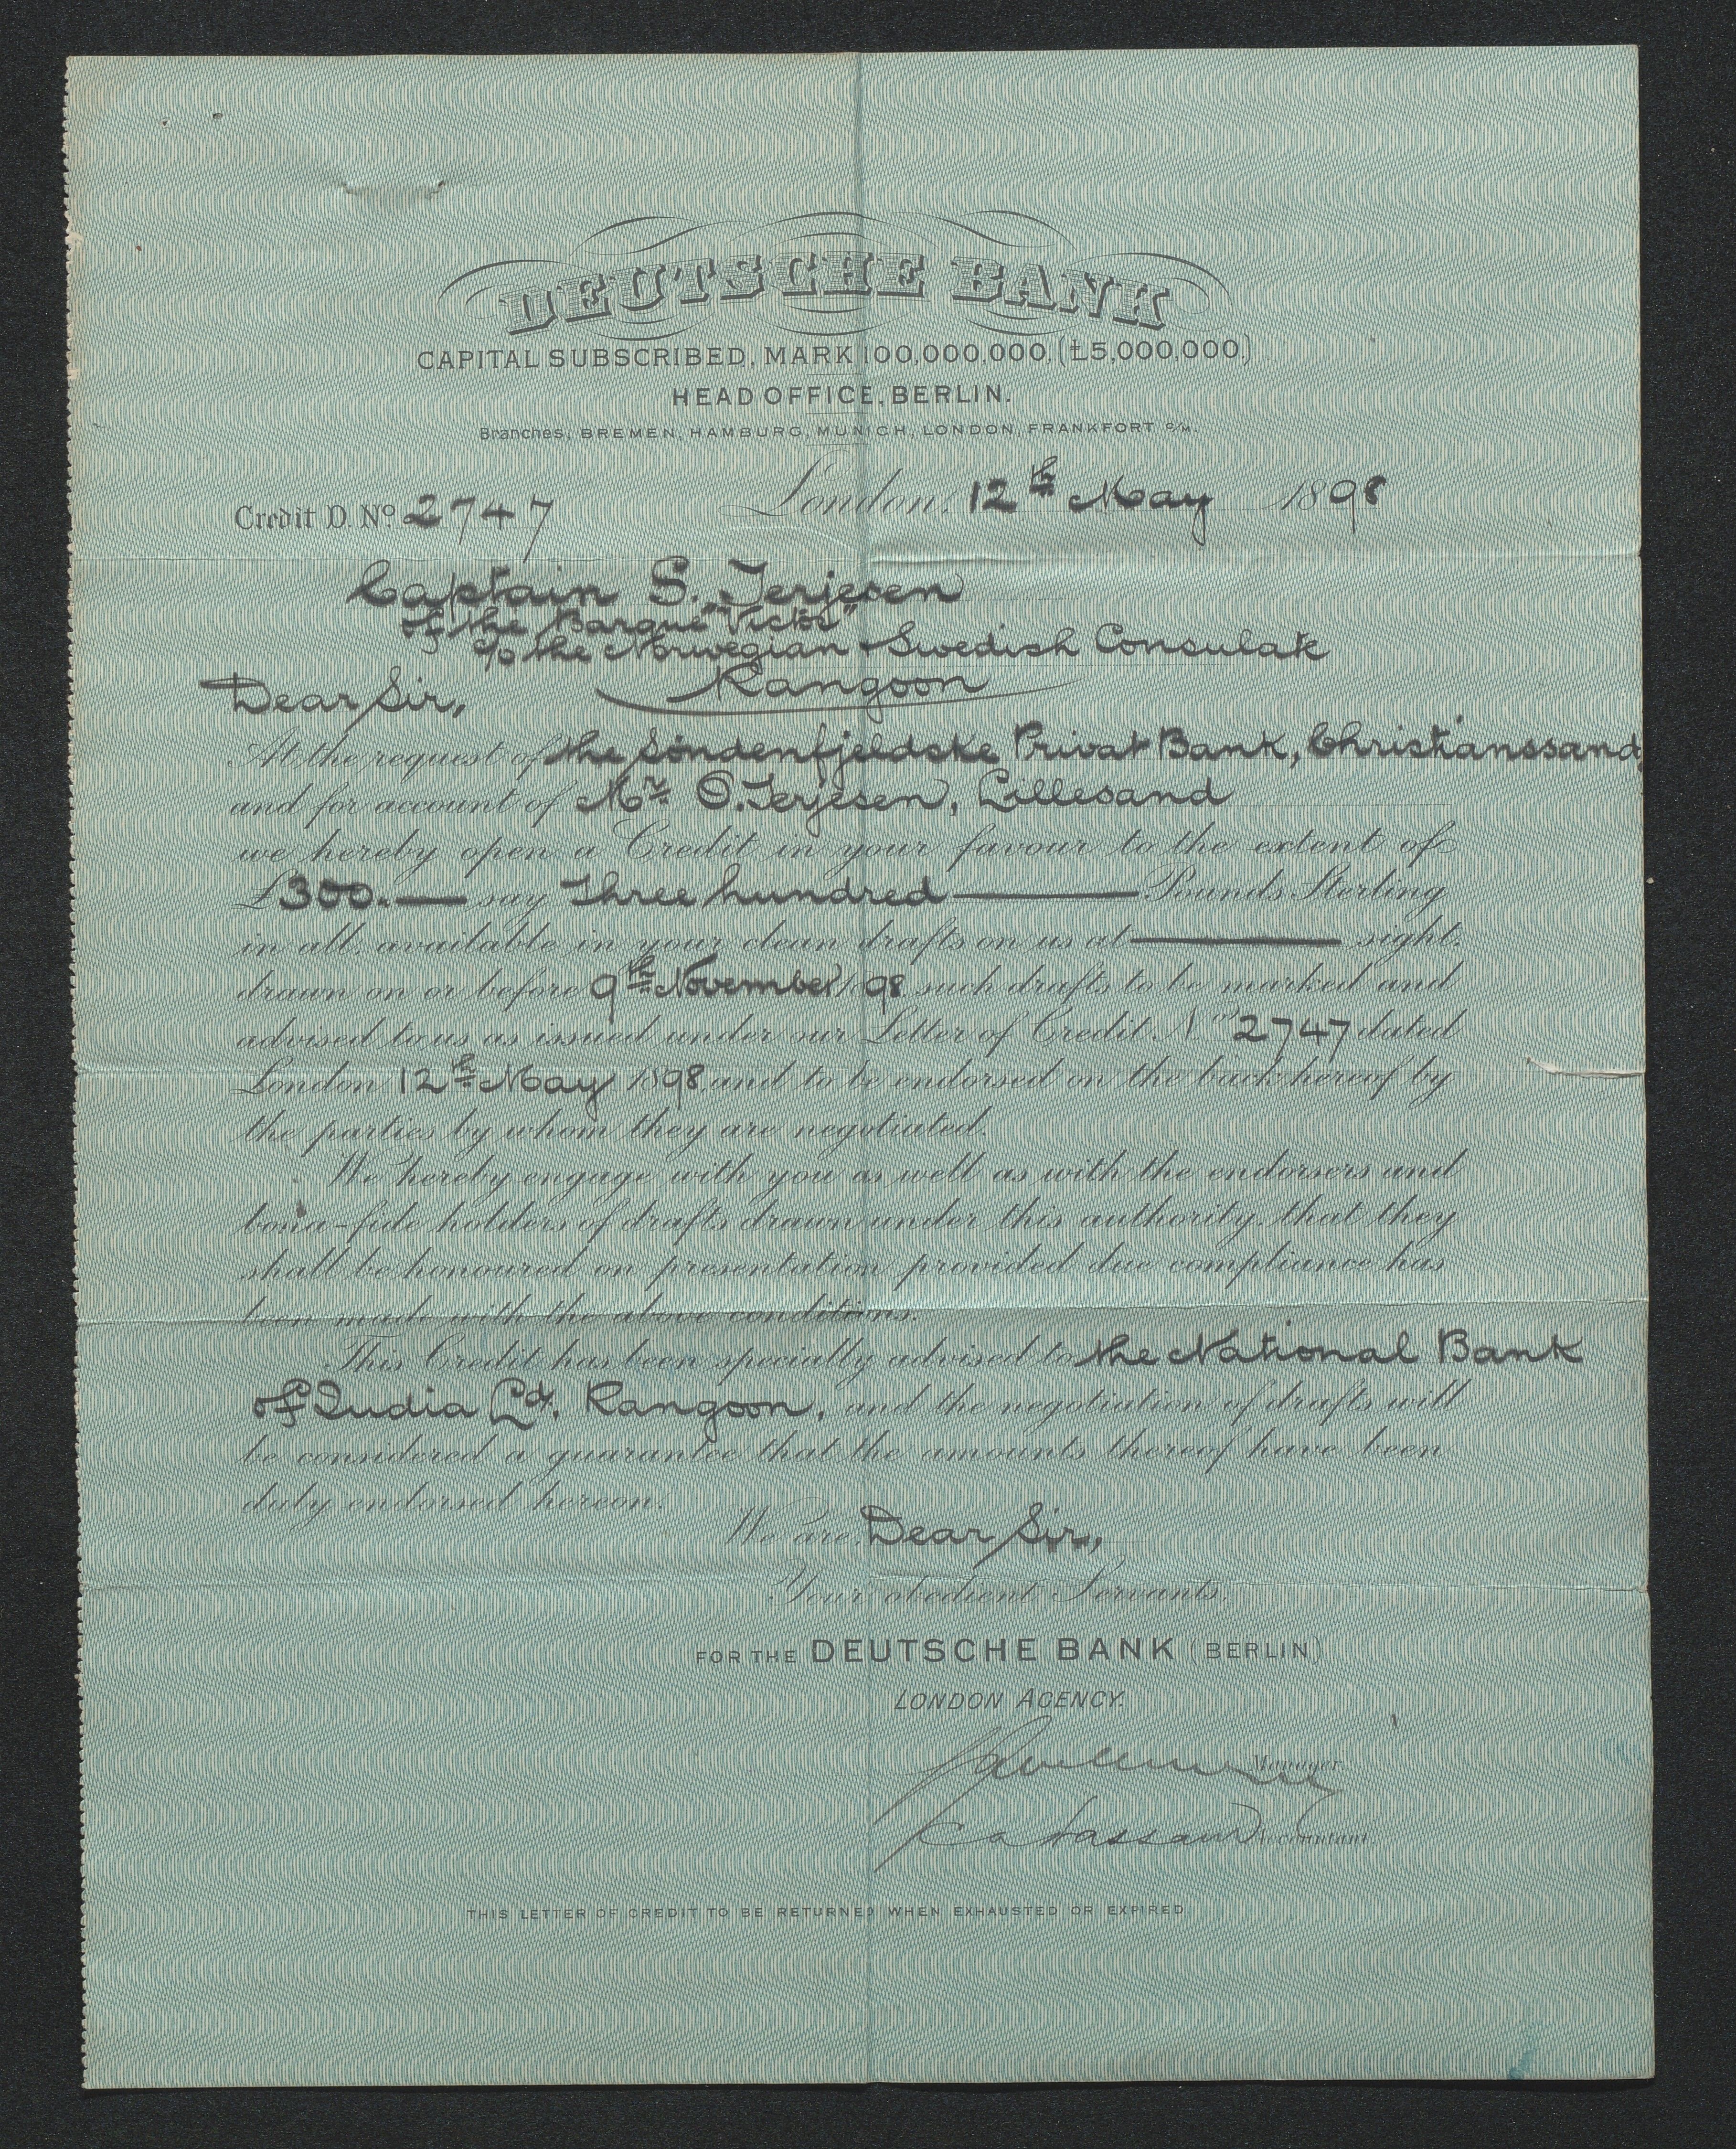 DEUTSCHE BANK
CAPITAL SUBSCRIBED, MARK 100,000,000. (£5,000,000.)
HEAD OFFICE, BERLIN.
Branches, BREMEN, HAMBURG, MUNICH, LONDON, FRANKFORT o/M.
London, 12th May 1898
Credit D. No 2747
Captain S. Terjesen
of the Barque "Victor"
c/o the Norwegian & Swedish Consulate
Rangoon
Dear Sir,
At the request of the Söndenfjeldske Privat Bank, Christianssand,
and for account of Mr. O. Terjesen, Lillesand
we hereby open a Credit in your favour to the extent of
£300.— say Three hundred — Pounds Sterling
in all, available in your clean drafts on us at — sight,
drawn on or before 9th November 1898 such drafts to be marked and
advised to us as issued under our Letter of Credit No 2747 dated
London 12th May 1898 and to be endorsed on the back hereof by
the parties by whom they are negotiated.
We hereby engage with you as well as with the endorsers and
bona-fide holders of drafts drawn under this authority, that they
shall be honoured on presentation provided due compliance has
been made with the above conditions.
This Credit has been specially advised to the National Bank
of India Ld., Rangoon, and the negotiation of drafts will
be considered a guarantee that the amounts thereof have been
duly endorsed hereon.
We are, Dear Sir,
Your obedient Servants,
FOR THE DEUTSCHE BANK (BERLIN)
LONDON AGENCY.
Manager
Accountant
THIS LETTER OF CREDIT TO BE RETURNED WHEN EXHAUSTED OR EXPIRED